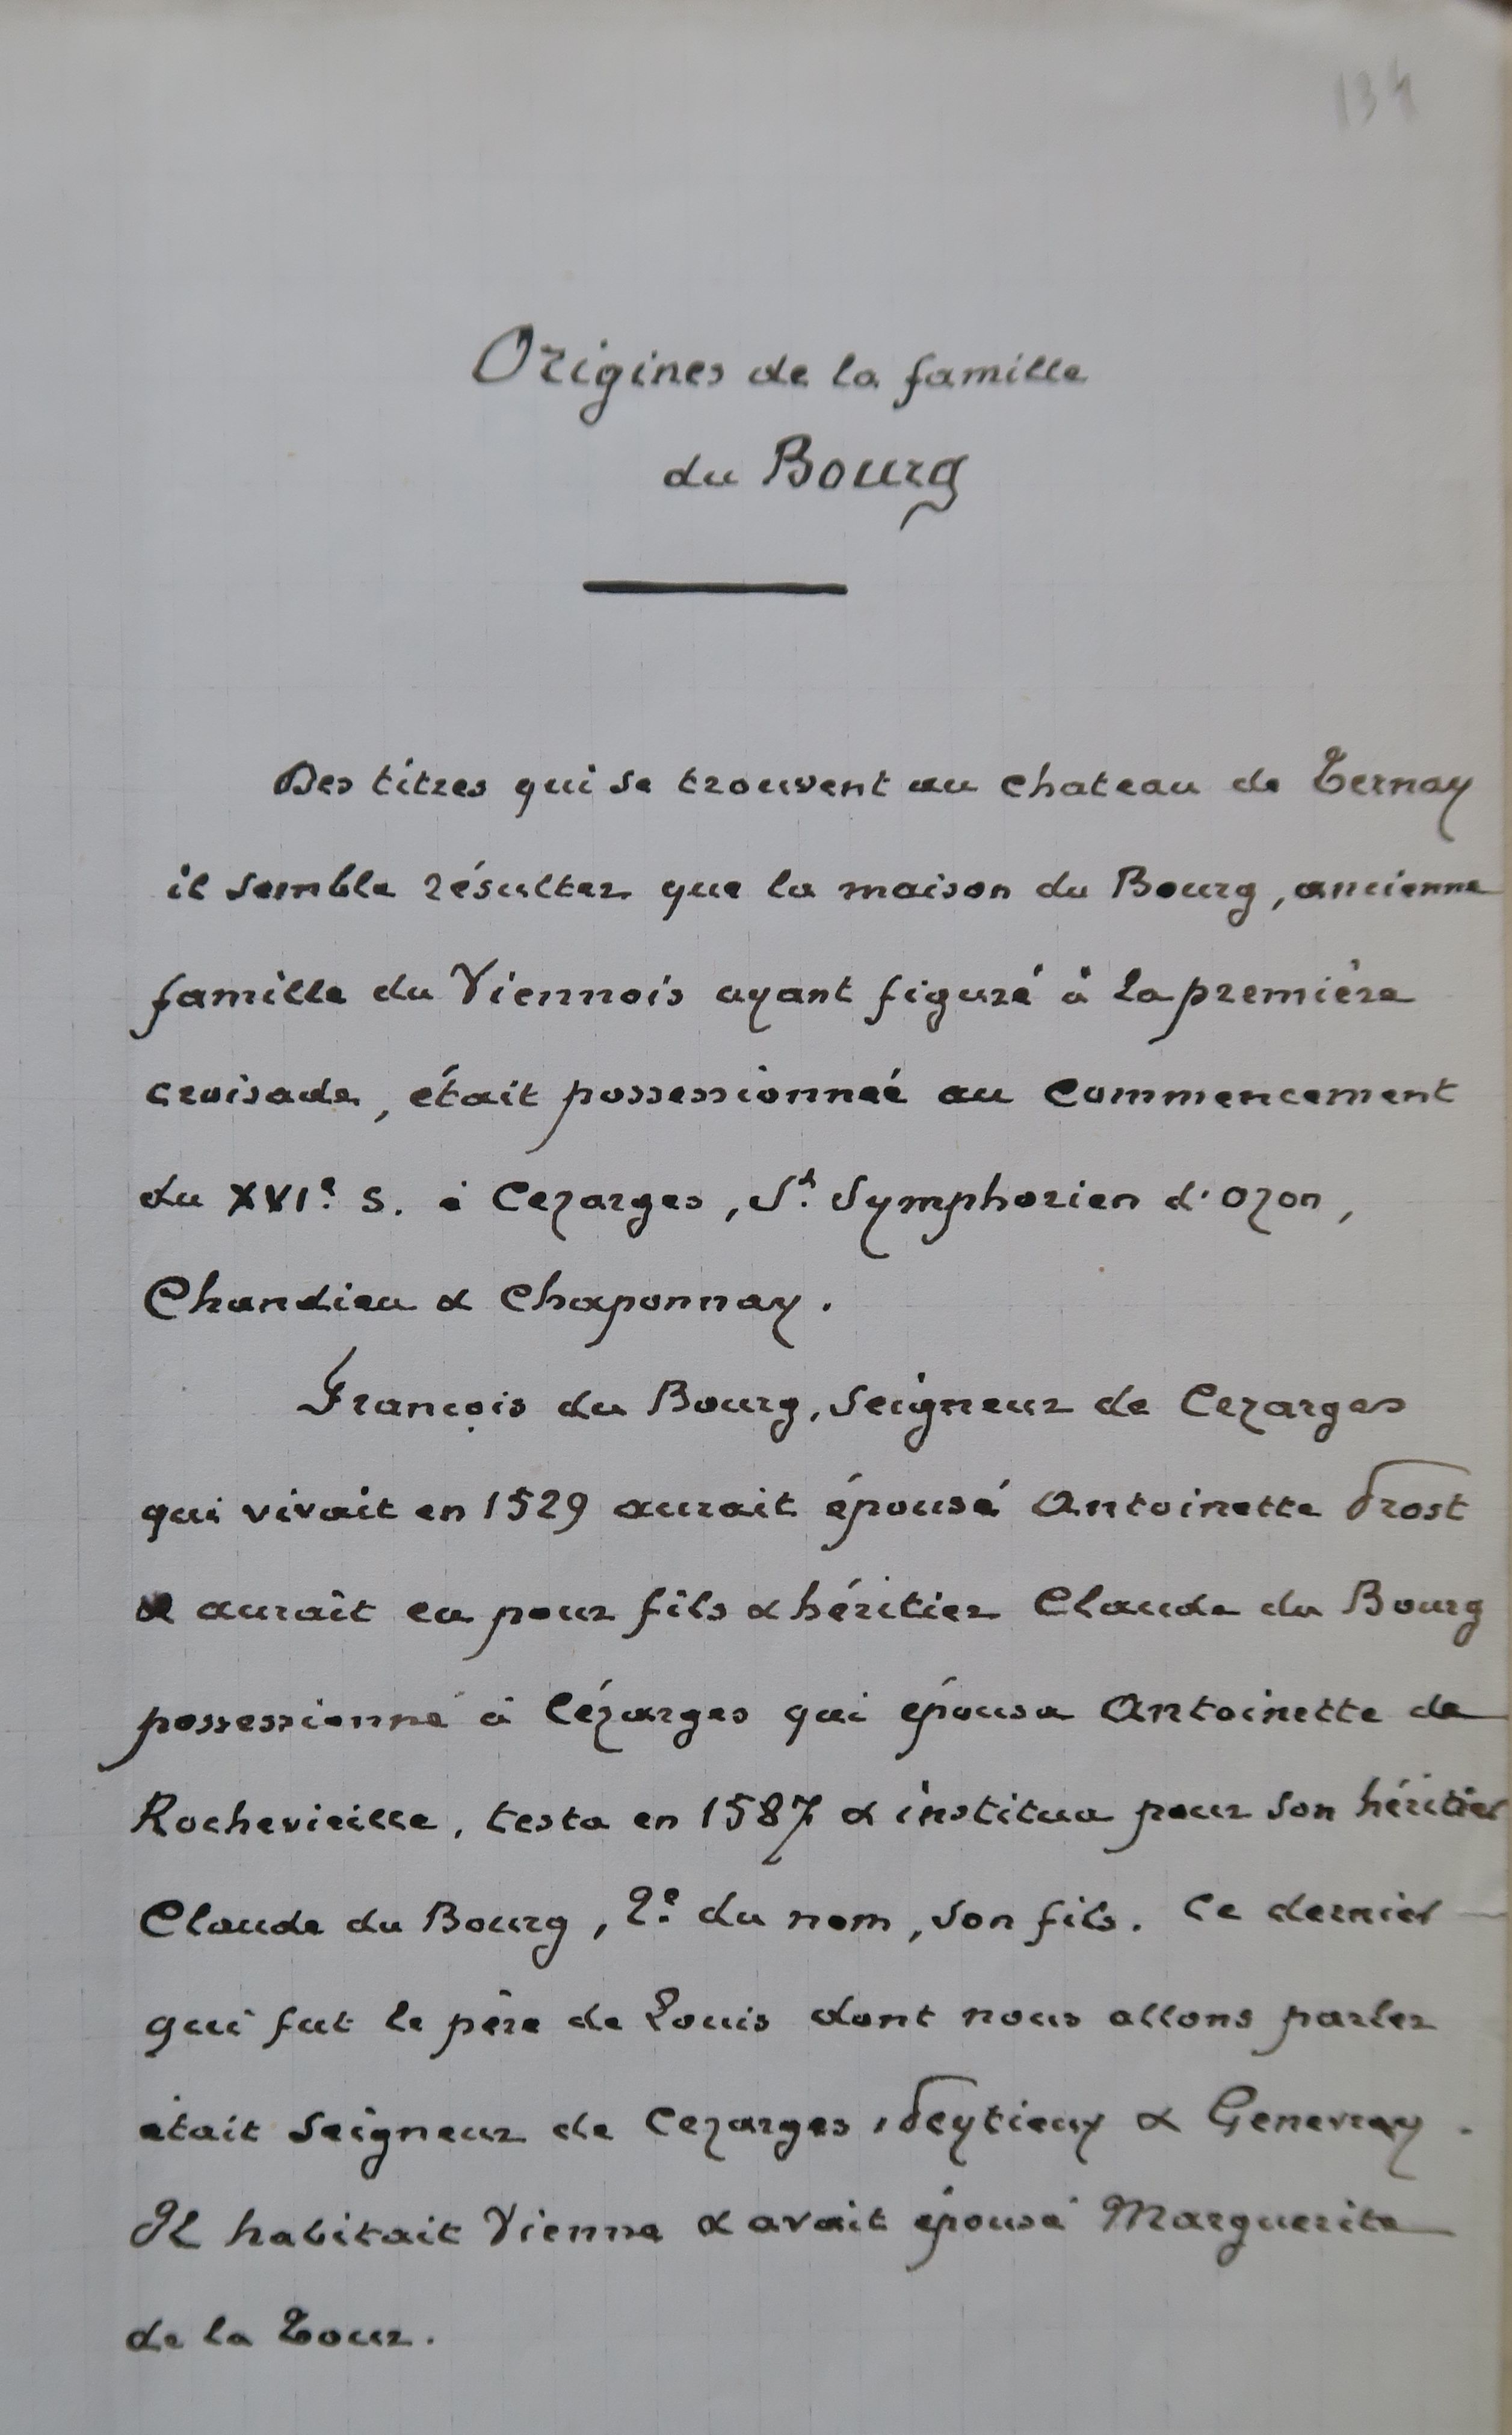 134
Origines de la famille
du Bourg
Des titres qui se trouvent au chateau de Ternay
il semble résulter que la maison du Bourg, ancienne
famille du Viennois ayant figuré à la première
croisade, était possessionneé au commencement
du XVIe s. à Cezarges, St Symphorien d'Ozon,
Chandieu & Chaponnay.
François du Bourg, seigneur de Cezarges
qui vivait en 1529 aurait épousé Antoinette Prost
& aurait eu pour fils & héritier Claude du Bourg
possessionné à Cézarges qui épousa Antoinette de
Rochevieille, testa en 1587 & institua pour son héritier
Claude du Bourg, 2e du nom, son fils. Ce dernier
qui fut le père de Louis dont nous allons parler
était seigneur de Cezarges, Peytieux & Genevray.
Il habitait Vienne & avait épousé Marguerite
de la Tour.